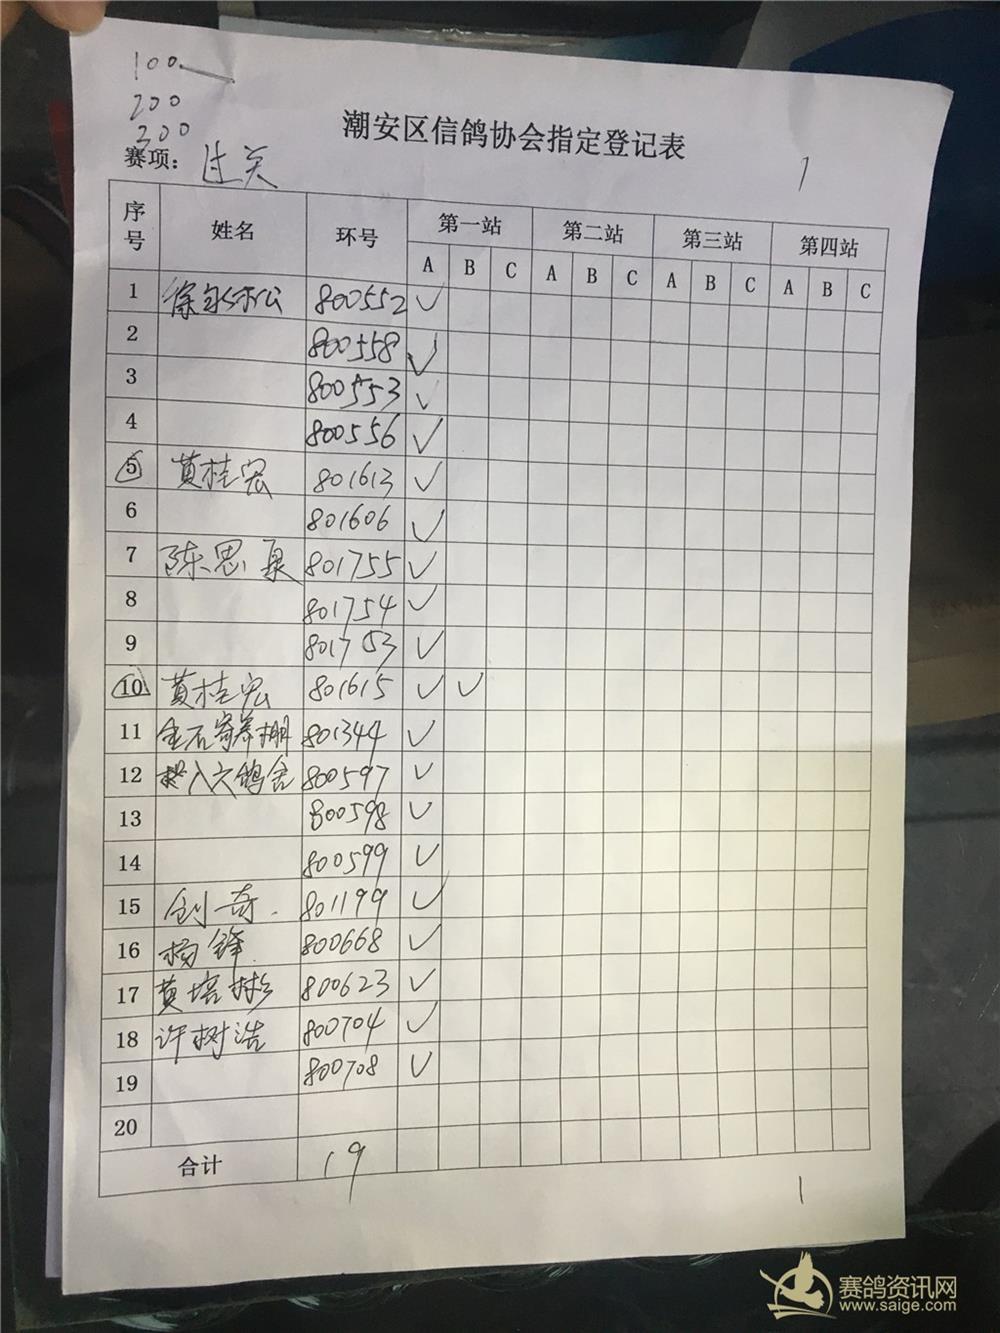 100
200
300
潮安区信鸽协会指定登记表
赛项: 过关
1
序号 姓名 环号 第一站 第二站 第三站 第四站
A B C A B C A B C A B C
1 800552 ✓
2 800558 ✓
3 800553 ✓
4 800556 ✓
5 黄桂宏 801613 ✓
6 801606 ✓
7 陈思 801755 ✓
8 801754 ✓
9 801753 ✓
10 黄桂宏 801615 ✓ ✓
11 金石寄养棚 801344 ✓
12 八六鸽舍 800597 ✓
13 800598 ✓
14 800599 ✓
15 创奇. 801199 ✓
16 杨锋. 800668 ✓
17 黄培彬 800623 ✓
18 许树浩 800704 ✓
19 800708 ✓
20
合计 19
1
赛鸽资讯网
www.saige.com